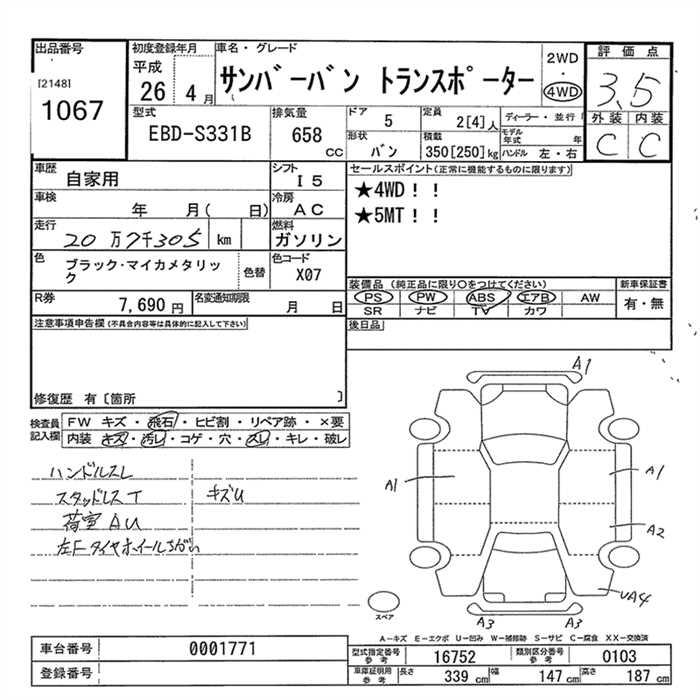 出品番号
[2148]
1067
初度登録年月
平成
26 4 月
車名・グレード
サンバーバン トランスポーター
2WD
・
4WD
評価点
3.5
外装 内装
C C
型式
EBD-S331B
排気量
658
CC
ドア
5
定員
2[4]人
ディーラー・並行
形状
バン
積載
350[250]kg
モデル年式 年
ハンドル 左・右
車歴
自家用
シフト
I 5
車検
年 月( 日)
冷房
AC
走行
20 万7千305 km
燃料
ガソリン
色
ブラック・マイカメタリック
色替
色コード
X07
R券
7,690 円
名変通知期限
月 日
セールスポイント(正常に機能するものに限ります)
★4WD!!
★5MT!!
装備品(純正品に限り○をつけてください)
PS PW ABS エアB AW
SR ナビ TV カワ
新車保証書
有・無
後日品
注意事項申告欄(不具合内容等は具体的に記入して下さい)
修復歴 有〔箇所 〕
検査員
記入欄
FW キズ・飛石・ヒビ割・リペア跡・×要
内装 キズ・汚レ・コゲ・穴・スレ・キレ・破レ
ハンドルスレ
スタッドレスT キズU
荷室AU
左Fタイヤホイールちがい
A1
A1
A1
A2
UA4
A3 A3
スペア
A-キズ E-エクボ U-凹み W-補修跡 S-サビ C-腐食 XX-交換済
車台番号 0001771
登録番号
型式指定番号
参考
16752
類別区分番号
参考
0103
車庫証明用
参考
長さ 339 cm 幅 147 cm 高さ 187 cm